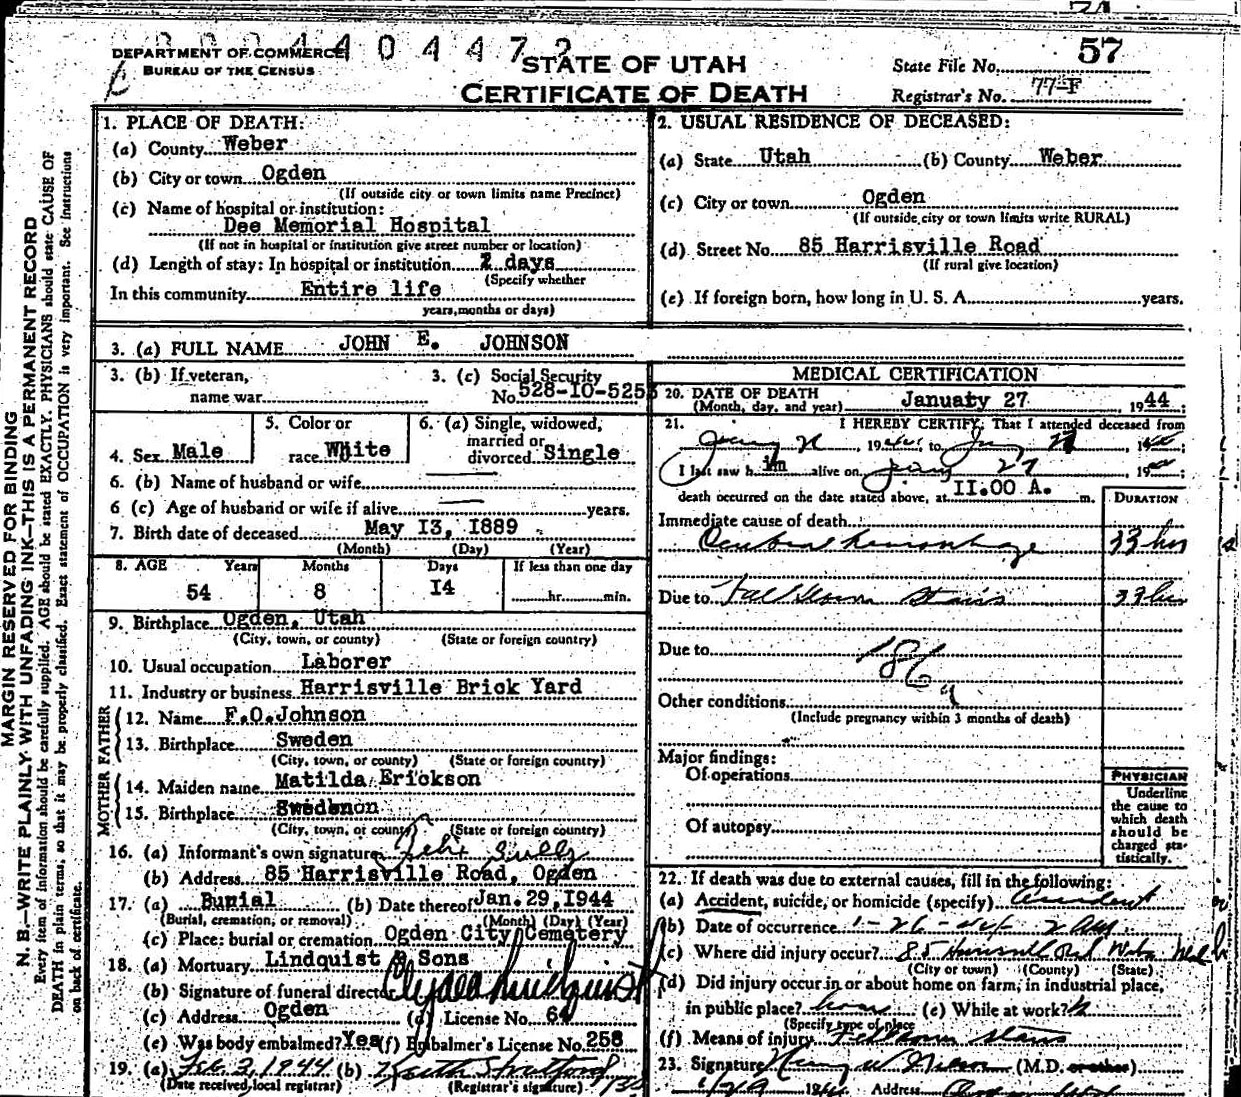 71
DEPARTMENT OF COMMERCE
BUREAU OF THE CENSUS
4 0 4 4 7 2
STATE OF UTAH
CERTIFICATE OF DEATH
State File No. 57
Registrar's No. 77-F
MARGIN RESERVED FOR BINDING
N. B.—WRITE PLAINLY WITH UNFADING INK—THIS IS A PERMANENT RECORD
Every item of information should be carefully supplied. AGE should be stated EXACTLY. PHYSICIANS should state CAUSE OF
DEATH in plain terms, so that it may be properly classified. Exact statement of OCCUPATION is very important. See instructions
on back of certificate.
1. PLACE OF DEATH:
(a) County Weber
(b) City or town Ogden
(If outside city or town limits name Precinct)
(c) Name of hospital or institution:
Dee Memorial Hospital
(If not in hospital or institution give street number or location)
(d) Length of stay: In hospital or institution 2 days
(Specify whether
In this community Entire life
years, months or days)
2. USUAL RESIDENCE OF DECEASED:
(a) State Utah (b) County Weber
(c) City or town Ogden
(If outside city or town limits write RURAL)
(d) Street No. 85 Harrisville Road
(If rural give location)
(e) If foreign born, how long in U. S. A. years.
3. (a) FULL NAME JOHN E. JOHNSON
3. (b) If veteran,
name war
3. (c) Social Security
No. 528-10-5253
4. Sex Male
5. Color or
race White
6. (a) Single, widowed,
married or
divorced Single
6. (b) Name of husband or wife
6 (c) Age of husband or wife if alive years.
7. Birth date of deceased May 13, 1889
(Month) (Day) (Year)
8. AGE Years Months Days If less than one day
54 8 14 hr. min.
9. Birthplace Ogden, Utah
(City, town, or county) (State or foreign country)
10. Usual occupation Laborer
11. Industry or business Harrisville Brick Yard
FATHER
12. Name F.O.Johnson
13. Birthplace Sweden
(City, town, or county) (State or foreign country)
MOTHER
14. Maiden name Matilda Erickson
15. Birthplace Sweden
(City, town, or county) (State or foreign country)
16. (a) Informant's own signature
(b) Address 85 Harrisville Road, Ogden
17. (a) Burial (b) Date thereof Jan. 29, 1944
(Burial, cremation, or removal) (Month) (Day) (Year)
(c) Place: burial or cremation Ogden City Cemetery
18. (a) Mortuary Lindquist & Sons
(b) Signature of funeral director Clyde Lindquist
(c) Address Ogden (d) License No. 64
(e) Was body embalmed? Yes (f) Embalmer's License No. 258
19. (a) Feb. 2, 1944 (b)
(Date received local registrar) (Registrar's signature)
MEDICAL CERTIFICATION
20. DATE OF DEATH
(Month, day, and year) January 27, 1944
21. I HEREBY CERTIFY, That I attended deceased from
1944 to 1944
I last saw him alive on Jany 27 1944
death occurred on the date stated above, at 11.00 A. m.
DURATION
Immediate cause of death
Cerebral hemorrhage 33 hrs
Due to Fall down stairs 33 hrs
Due to
186a
Other conditions
(Include pregnancy within 3 months of death)
Major findings:
Of operations
Of autopsy
PHYSICIAN
Underline
the cause to
which death
should be
charged sta-
tistically.
22. If death was due to external causes, fill in the following:
(a) Accident, suicide, or homicide (specify) Accident
(b) Date of occurrence 1-26-44 2 AM.
(c) Where did injury occur? 85
(City or town) (County) (State)
(d) Did injury occur in or about home on farm, in industrial place,
in public place? home (e) While at work?
(Specify type of place
(f) Means of injury Fell down stairs
23. Signature (M.D. or other)
1/29 1944 Address